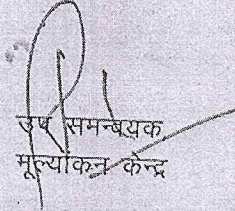 उप समन्वयक
मूल्यांकन केन्द्र